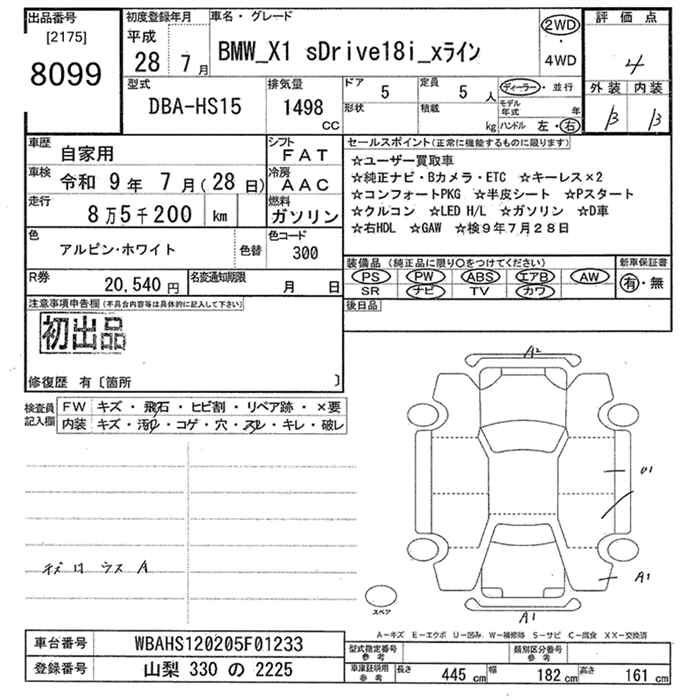 出品番号 [2175] 8099
初度登録年月 平成 28 7月
車名・グレード BMW_X1 sDrive18i_xライン
2WD・4WD
評価点 4
外装 B 内装 B
型式 DBA-HS15
排気量 1498 CC
ドア 5 形状
定員 5 人 積載 kg
ディーラー・並行
モデル年式 年
ハンドル 左・右
車歴 自家用
シフト FAT
車検 令和 9年 7月(28日)
冷房 AAC
走行 8万5千200 km
燃料 ガソリン
色 アルピン・ホワイト 色替
色コード 300
R券 20,540円
名変通知期限 月 日
セールスポイント(正常に機能するものに限ります)
☆ユーザー買取車
☆純正ナビ・Bカメラ・ETC ☆キーレス×2
☆コンフォートPKG ☆半皮シート ☆Pスタート
☆クルコン ☆LED H/L ☆ガソリン ☆D車
☆右HDL ☆GAW ☆検9年7月28日
装備品(純正品に限り○をつけてください)
PS PW ABS エアB AW
SR ナビ TV カワ
新車保証書 有・無
後日品
注意事項申告欄(不具合内容等は具体的に記入して下さい)
初出品
修復歴 有〔箇所 〕
検査員記入欄
FW キズ・飛石・ヒビ割・リペア跡・×要
内装 キズ・汚れ・コゲ・穴・スレ・キレ・破レ
A2
U1
A1
A1
スペア
A－キズ E－エクボ U－凹み W－補修跡 S－サビ C－腐食 XX－交換済
車台番号 WBAHS120205F01233
登録番号 山梨 330 の 2225
型式指定番号 参考
類別区分番号 参考
車庫証明用参考 長さ 445cm 幅 182cm 高さ 161cm